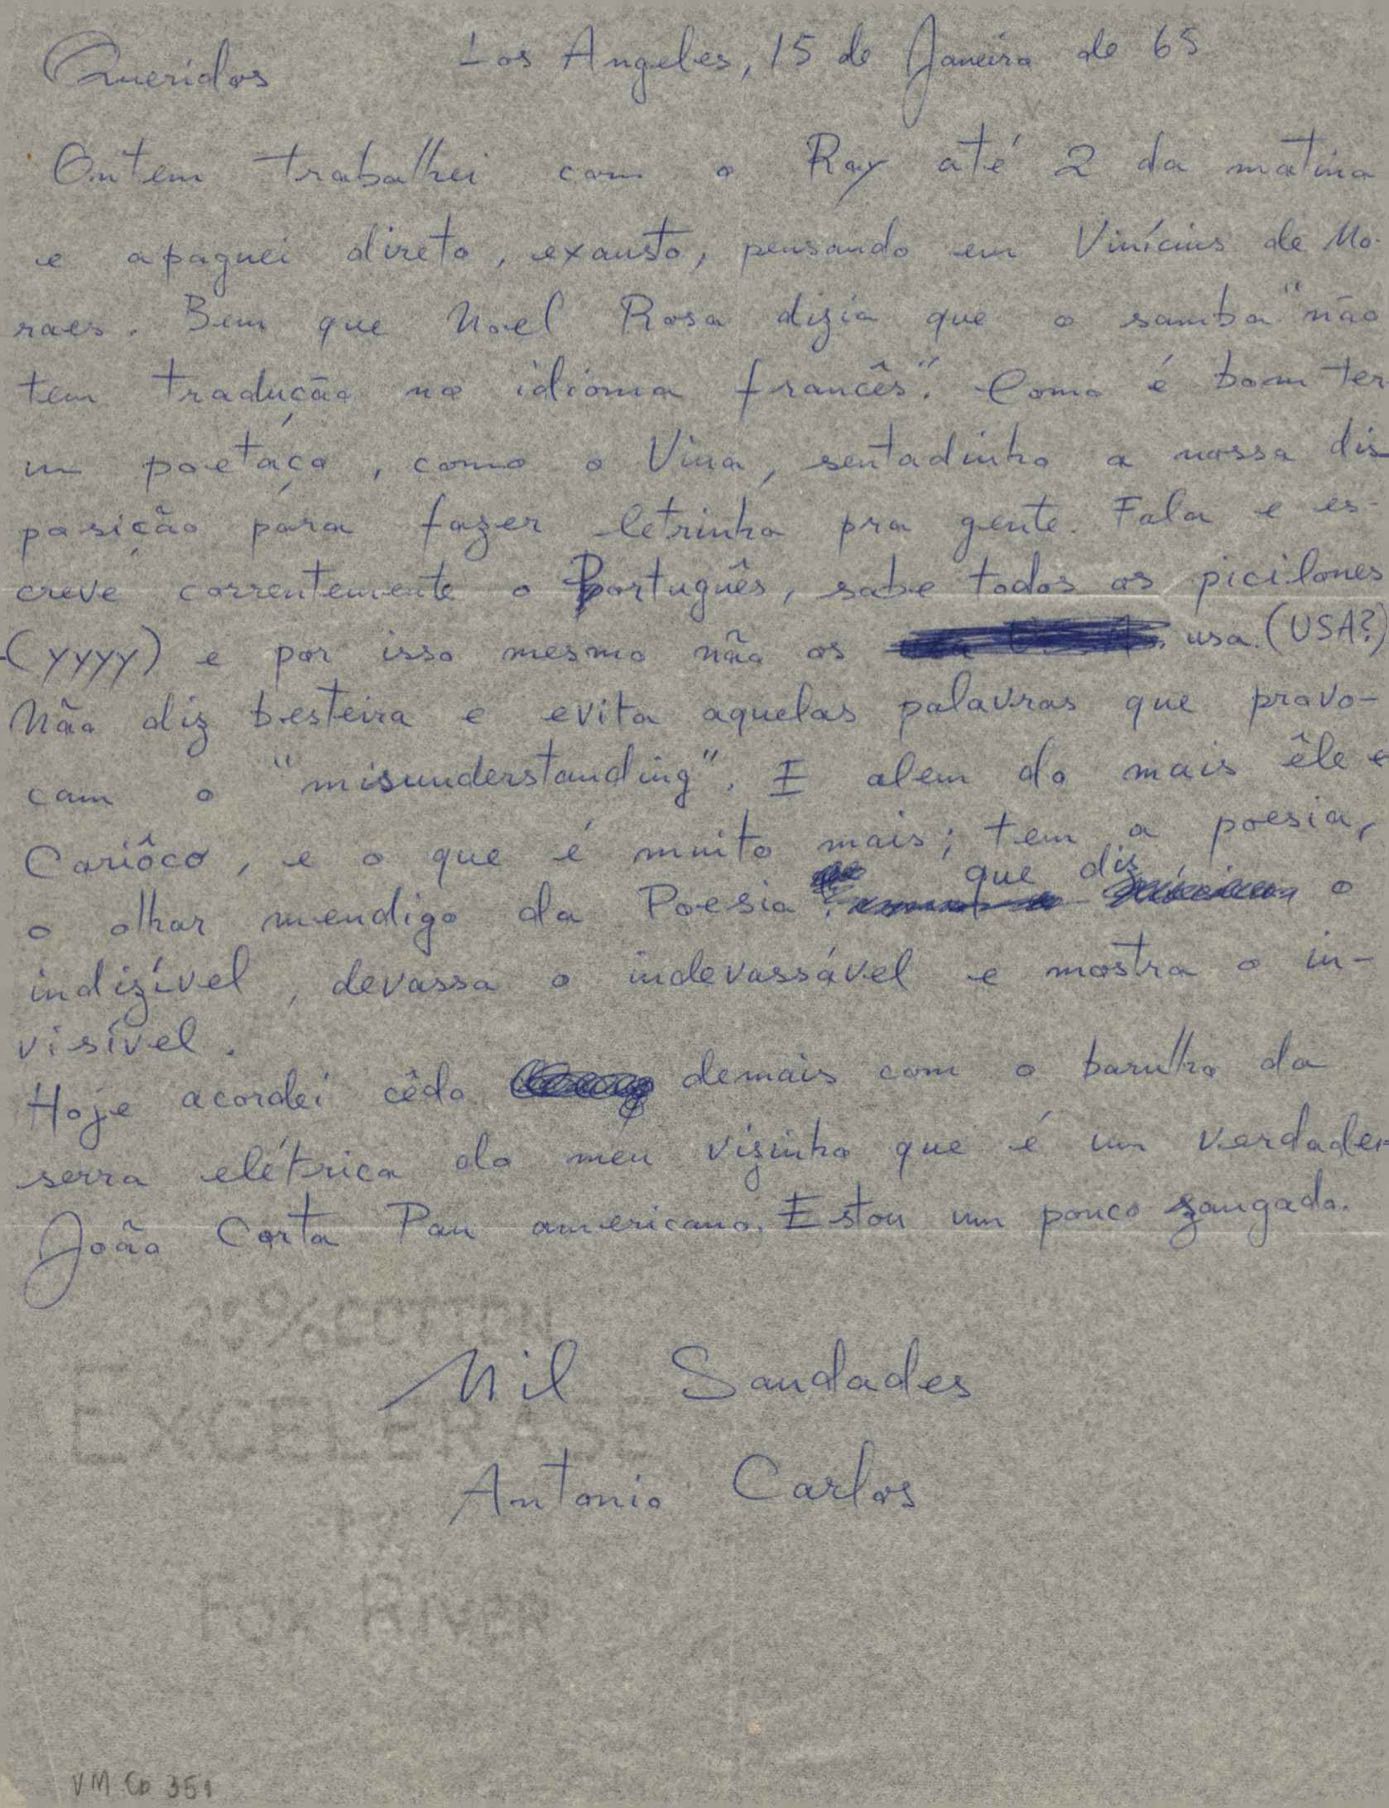 Los Angeles, 15 de Janeiro de 65
Queridos
Ontem trabalhei com o Ray até 2 da matina
e apaguei direto, exausto, pensando em Vinícius de Mo-
raes. Bem que Noel Rosa dizia que o samba "não
tem tradução no idioma francês". Como é bom ter
um poetáço, como o Vina, sentadinho a nossa dis-
posição para fazer letrinha pra gente. Fala e es-
creve correntemente o Português, sabe todos os picilones
(yyyy) e por isso mesmo não os usa. (USA?)
Não diz besteira e evita aquelas palavras que provo-
cam o "misunderstanding". E alem do mais êle e
Cariôco, e o que é muito mais; tem a poesia,
o olhar mendigo da Poesia que diz o
indizível, devassa o indevassável e mostra o in-
visível.
Hoje acordei cêdo demais com o barulho da
serra elétrica do meu vizinho que é um verdadei
João Corta Pau americano. Estou um pouco zangado.
Mil Saudades
Antonio Carlos
25% COTTON
EXCELERASE
BY
FOX RIVER
VM Cp 351